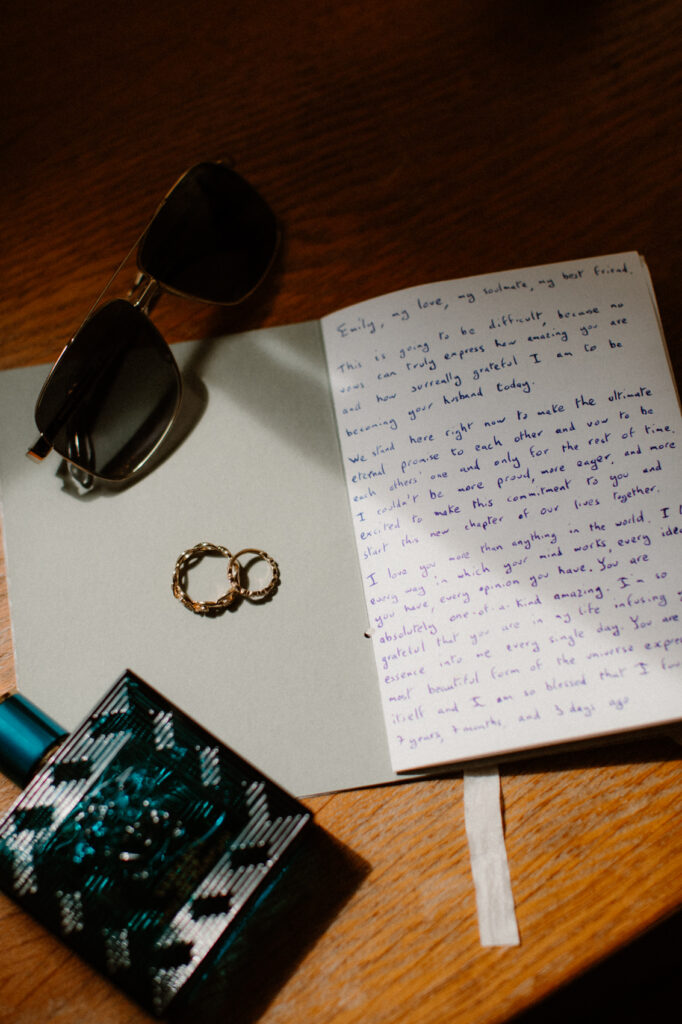 Emily, my love, my soulmate, my best friend.
This is going to be difficult, because no
vows can truly express how amazing you are
and how surreally grateful I am to be
becoming your husband today.
We stand here right now to make the ultimate
eternal promise to each other and vow to be
each others' one and only for the rest of time.
I couldn't be more proud, more eager, and more
excited to make this commitment to you and
start this new chapter of our lives together.
I love you more than anything in the world. I
every way in which your mind works, every idea
you have, every opinion you have. You are
absolutely one-of-a-kind amazing. I'm so
grateful that you are in my life infusing
essence into me every single day. You are
most beautiful form of the universe
itself and I am so blessed that I
7 years, 7 months, and 3 days ago